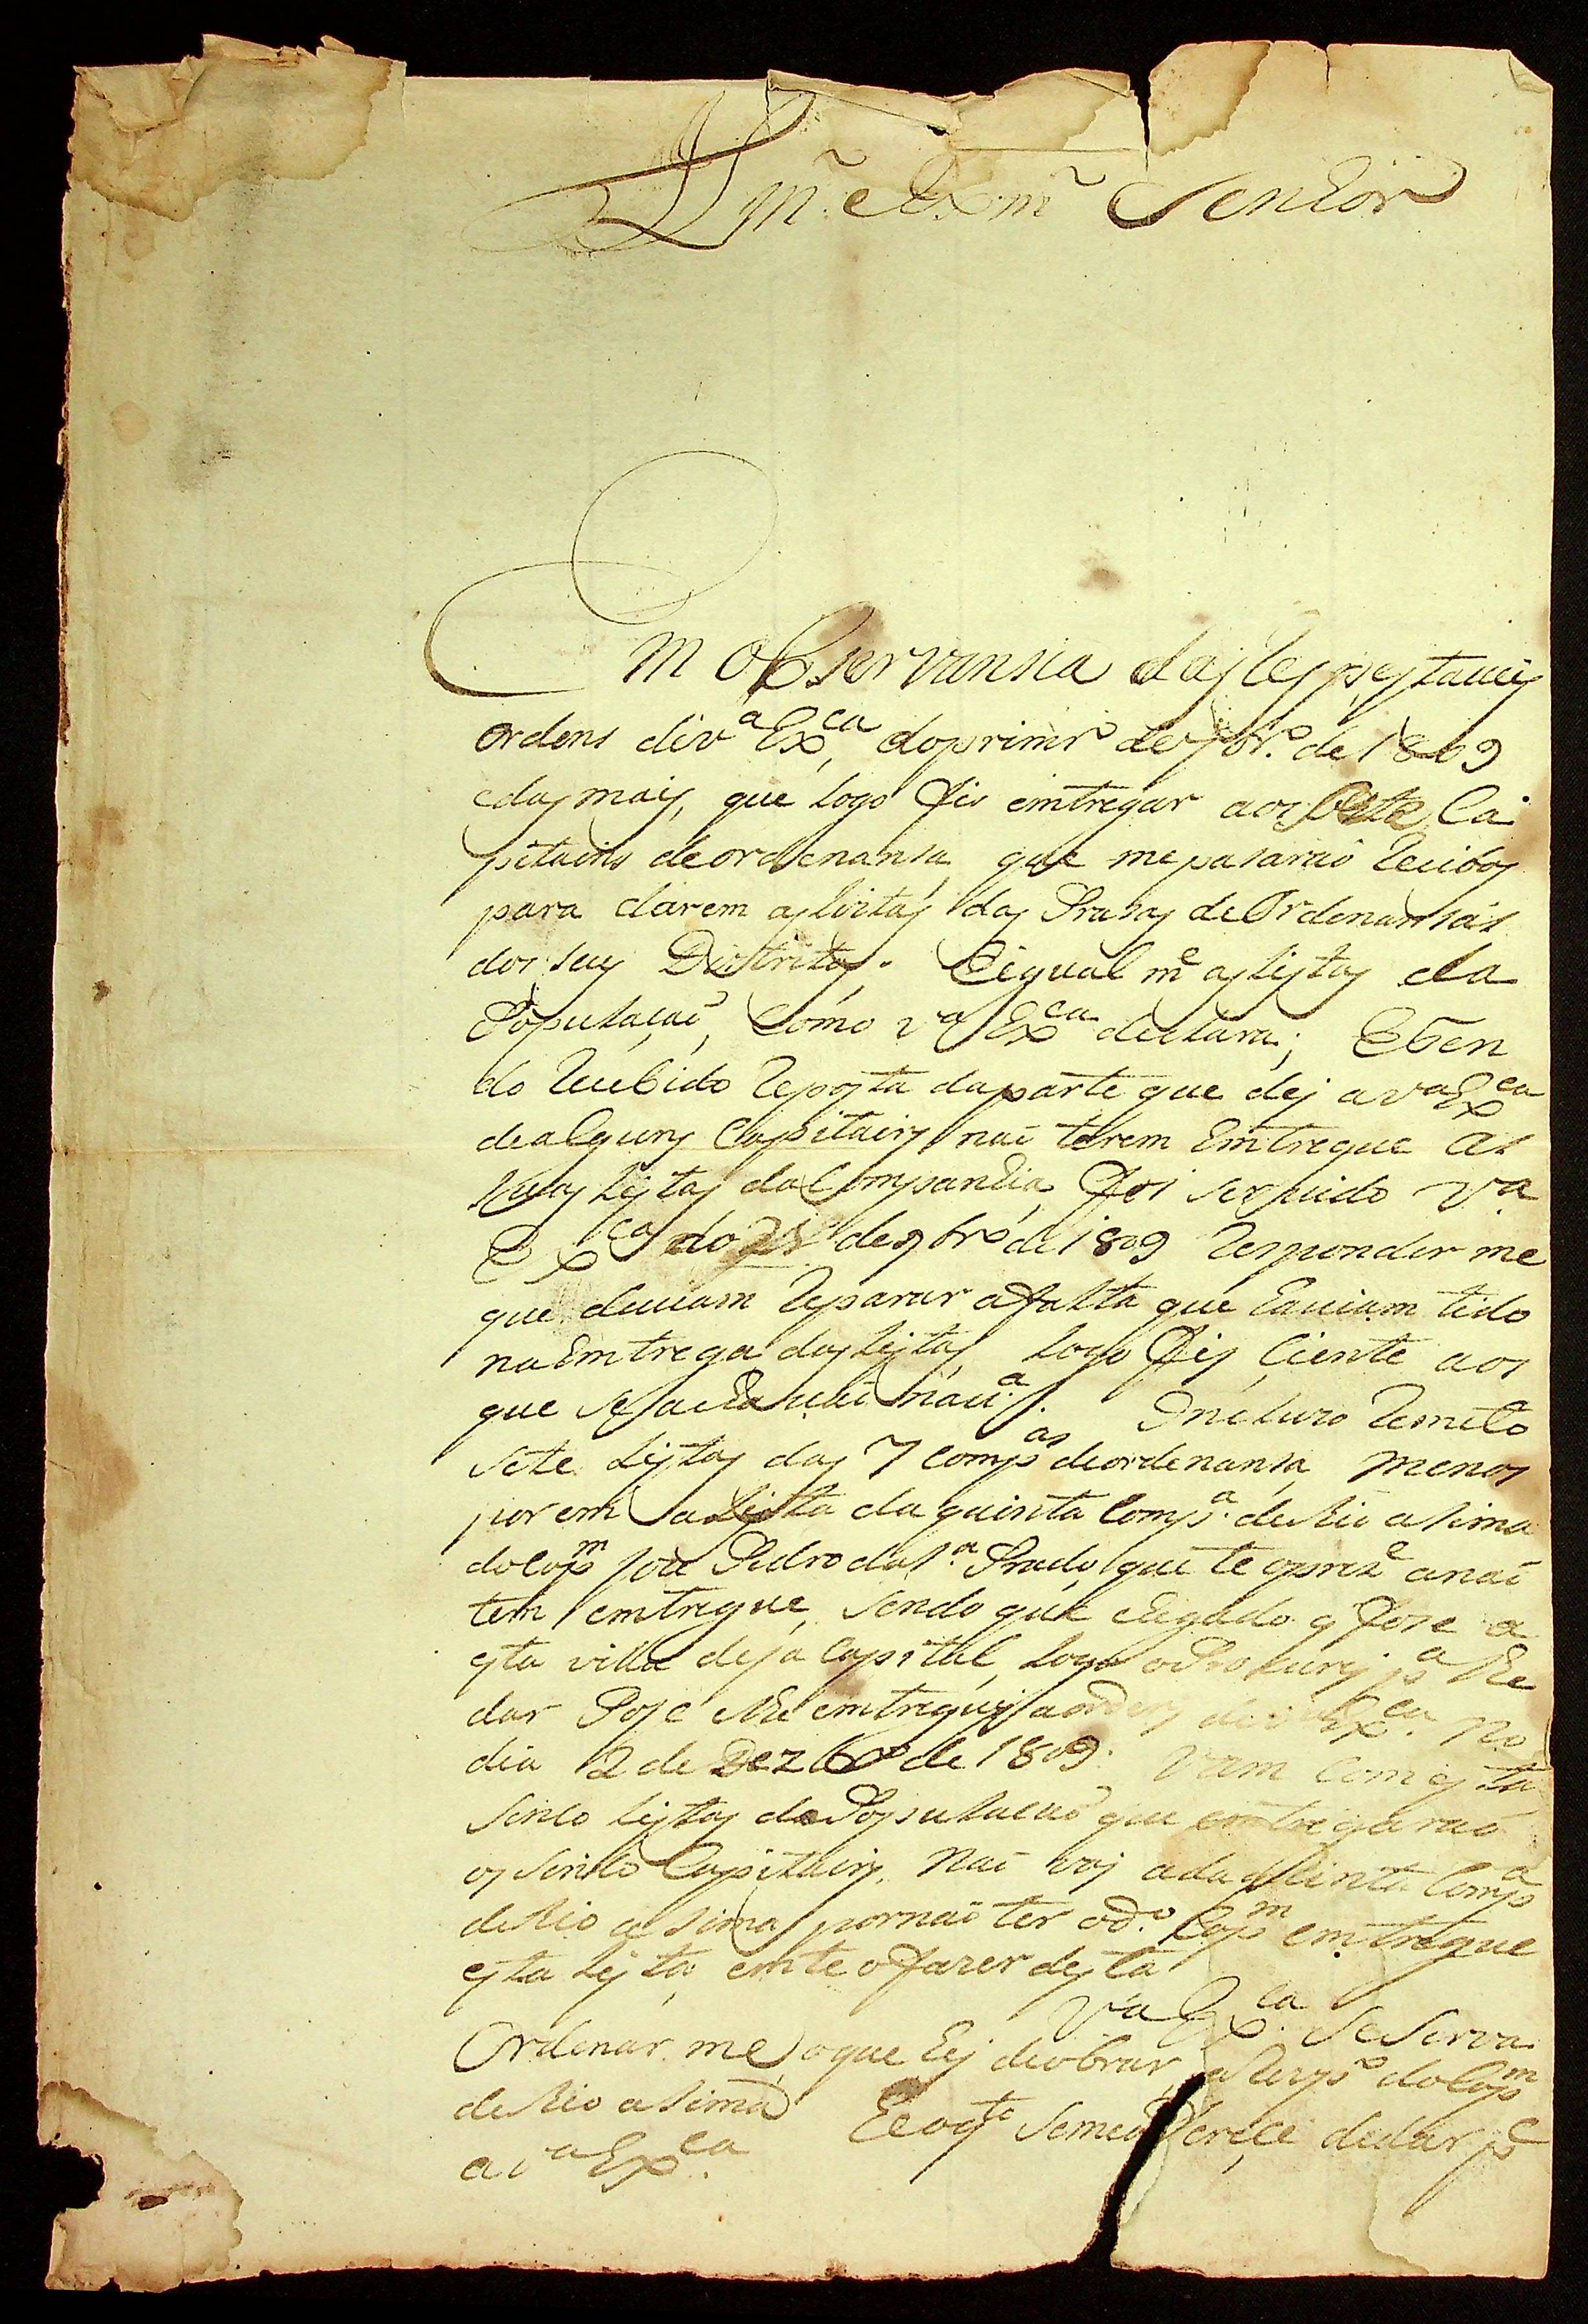 Ill.mº e Ex.mº Senhor
Em obServansia das Respeytaveis
Ordens de V.ª Ex.ca, do primrº de 9br.º de 1809
e das mais, que logo fis emtregar aos Sete Ca
pitains de ordenansa, que me pasaraõ Recibos
para darem as listas das Prasas de Ordenansas
dos seus Distritos. E igual m.e as listas da
Populaçaõ, Como V.ª Ex.ca declara; E ten
do Recebido Reposta da parte que dej a V.ª Ex.ca
de alguns Capitains naõ terem Emtregue as
Suas listas da Companhia, foi servido V.ª
Ex.ca de 9brº de 1809 Responder me
que deviam Reparar a falta que haviam tido
na Emtrega das listas, logo fis Ciente aos
que Se achavaõ
Incluzo Remeto
Sete listas das 7 Comp.as de ordenansa, menos
porem a lista da quinta Comp.ª de Rio asima
do Cap.m Joze Pedro da S.ª Prado, que te o prez.e a naõ
tem emtregue, Sendo que chegado q' fose a
esta villa desa Capital, logo o Prokurej p.ª lhe
dar Pose e lhe emtreguej as ordens de V.ª Ex.ca. no
dia 2 de Dezbrº de 1809. Vam Com esta
Sinco listas da Populacaõ que emtregaraõ
os Sinco Capitains, Naõ vaj a da quinta Comp.ª
de Rio asima, por naõ ter o d.º Cap.m emtregue
esta lista, emte o fazer desta
V.ª Ex.ca Se Serva
Ordenar me, o que hej de obrar, a Resp.º do Cap.m
de Rio asima. He o q.to Se me oferece de dar p.e
a V.ª Ex.ca.